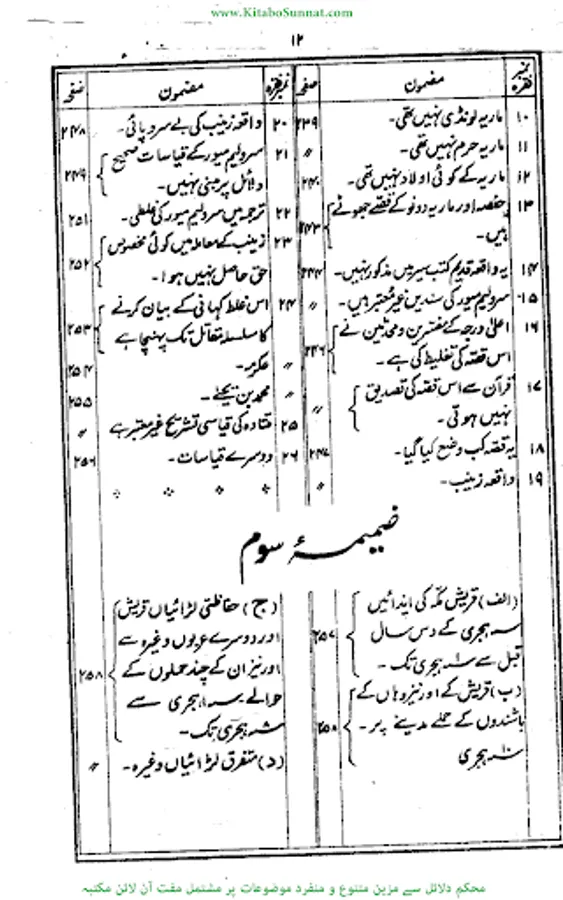 www.KitaboSunnat.com
۱۲
نمبر فقرہ مضمون صفحہ
۱۰ ماریہ لونڈی نہیں تھی۔ ۲۳۹
۱۱ ماریہ حرم نہیں تھی۔ 〃
۱۲ ماریہ کے کوئی اولاد نہیں تھی۔ ۲۴۰
۱۳ حفصہ اور ماریہ دونو کے قصے جھوٹے
ہیں۔ ۲۴۳
۱۴ یہ واقعہ قدیم کتب سیر میں مذکور نہیں۔ ۲۴۴
۱۵ سرولیم میور کی سندیں غیر معتبر ہیں۔ 〃
۱۶ اعلیٰ درجہ کے مفسرین و محدثین نے
اس قصہ کی تغلیط کی ہے۔ ۲۴۶
۱۷ قرآن سے اس قصہ کی تصدیق
نہیں ہوتی۔ 〃
۱۸ یہ قصہ کب وضع کیا گیا۔ ۲۴۷
۱۹ واقعہ زینب۔ 〃
نمبر فقرہ مضمون صفحہ
۲۰ واقعہ زینب کی بے سروپائی۔ ۲۴۸
۲۱ سرولیم میور کے قیاسات صحیح
دلائل پر مبنی نہیں۔ ۲۴۹
۲۲ ترجمہ میں سرولیم میور کی غلطی۔ ۲۵۱
۲۳ زینب کے معاملہ میں کوئی مخصوص
حق حاصل نہیں ہوا۔ ۲۵۲
۲۴ اس غلط کہانی کے بیان کرنے
کا سلسلہ مقاتل تک پہنچا ہے ۲۵۳
〃 عکرمہ۔ ۲۵۴
〃 محمد بن یحییٰ۔ ۲۵۵
۲۵ قتادہ کی قیاسی تشریح غیر معتبر ہے 〃
۲۶ دوسرے قیاسات۔ ۲۵۶
ضمیمۂ سوم
(الف) قریش مکہ کی ایذائیں
سنہ ہجری کے دس سال
قبل سے سنہ ۱ ہجری تک۔ ۲۵۷
(ب) قریش کے اور نیز وہاں کے
باشندوں کے حملے مدینے پر۔ ۲۵۸
سنہ ۱۰ ہجری
(ج) حفاظتی لڑائیاں قریش
اور دوسرے عربوں وغیرہ سے
اور نیز ان کے چند حملوں کے ۲۵۸
حوالے سنہ ۱ ہجری سے
سنہ ہجری تک۔
(د) متفرق لڑائیاں وغیرہ۔ 〃
محکم دلائل سے مزین متنوع و منفرد موضوعات پر مشتمل مفت آن لائن مکتبہ